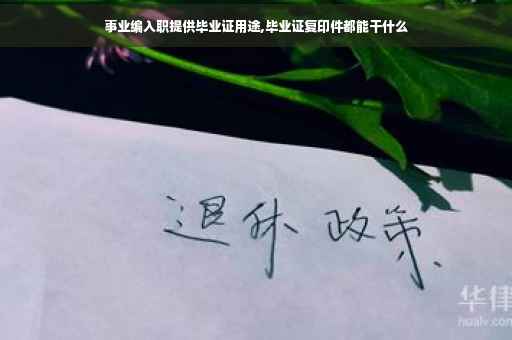 事业编入职提供毕业证用途,毕业证复印件都能干什么
退休 政策
华律
hualv.com